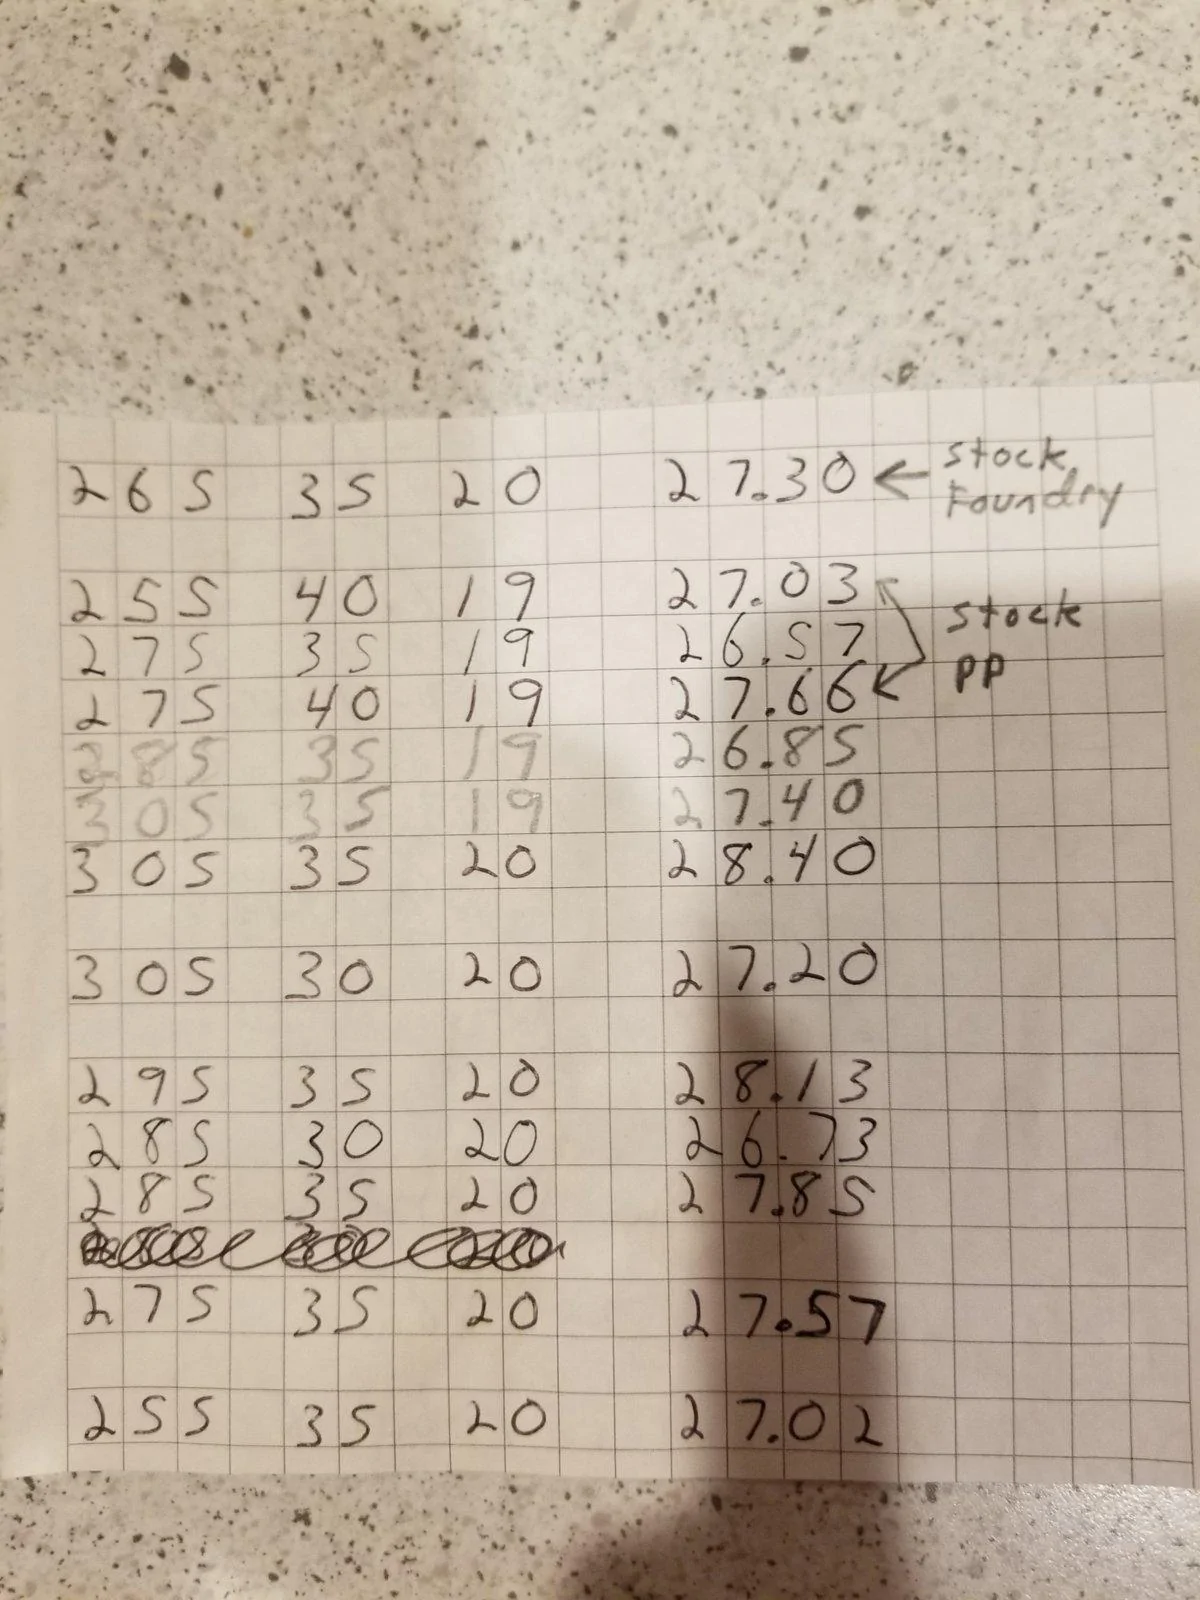 265 35 20 27.30 ← stock Foundry
255 40 19 27.03
275 35 19 26.57 stock
275 40 19 27.66 PP
285 35 19 26.85
305 35 19 27.40
305 35 20 28.40
305 30 20 27.20
295 35 20 28.13
285 30 20 26.73
285 35 20 27.85
275 35 20 27.57
255 35 20 27.02